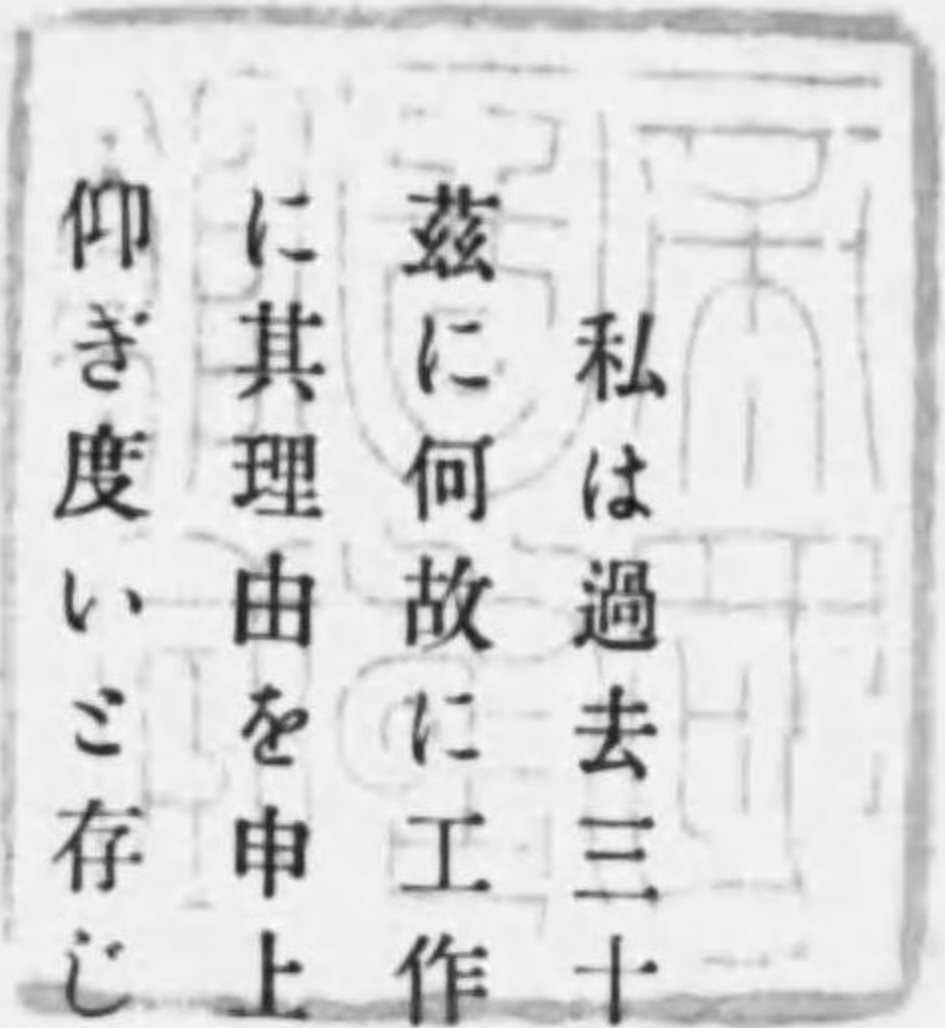 私は過去三十
茲に何故に工作
に其理由を申上
仰ぎ度いと存じ